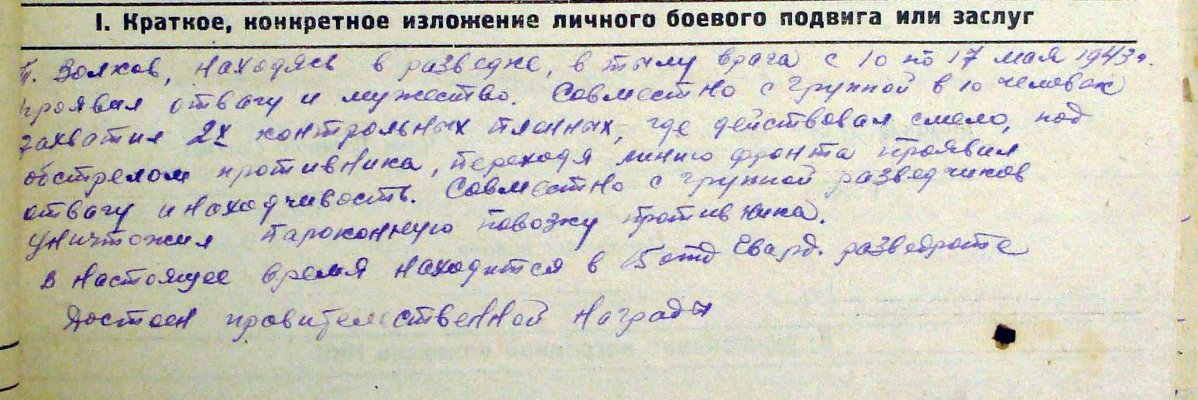 I. Краткое, конкретное изложение личного боевого подвига или заслуг
т. Волков, находясь в разведке, в тылу врага с 10 по 17 мая 1943 г.
проявил отвагу и мужество. Совместно с группой в 10 человек
захватил 2х контрольных пленных, где действовал смело, под
обстрелом противника, переходя линию фронта проявил
отвагу и находчивость. Совместно с группой разведчиков
уничтожил пароконную повозку противника.
В настоящее время находится в 15 отд гвард. разведроте
Достоен правительственной награды